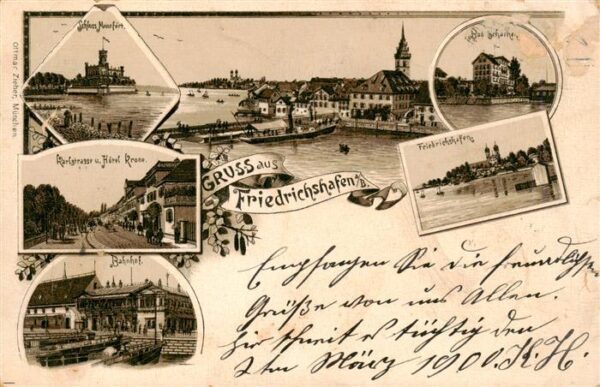 Schloss Montfort.
Bad Schachen
Ottmar Zieher, München.
Friedrichshafen
Karlstrasse u. Hôtel Krone.
GRUSS aus
Friedrichshafen a/B.
Bahnhof.
Empfangen Sie die freundlichsten
Grüße von uns Allen.
hier schneit es tüchtig den
2ten März 1900. K. H.